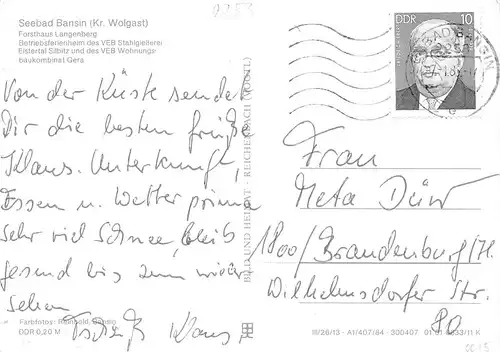 Seebad Bansin (Kr. Wolgast)
Forsthaus Langenberg
Betriebsferienheim des VEB Stahlgießerei
Elstertal Silbitz und des VEB Wohnungs-
baukombinat Gera
Von der Küste sende
Dir die besten Grüße
Klaus. Unterkunft,
Essen u. Wetter prima
sehr viel Schnee, bleib
gesund bis zum wieder
sehen
Tschüß Klaus
Farbfotos: Reinhold, Bansin
DDR 0,20 M
BILD UND HEIMAT · REICHENBACH (VOGTL)
DDR 10
Frau
Meta Dürr
1800/Brandenburg/H.
Wilhelmsdorfer Str.
80
III/26/13 · A1/407/84 · 300407 01 01 0533/11 K